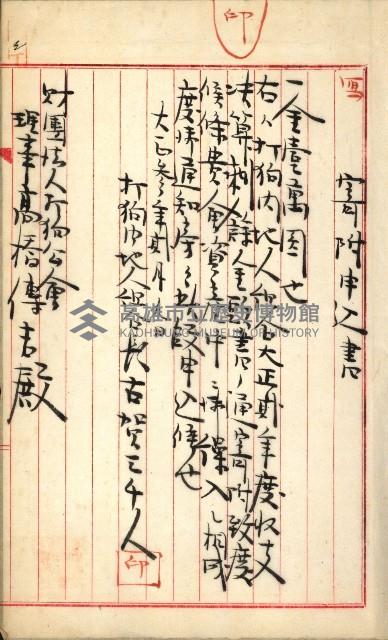 印
寄附申込書
一金壹萬圓也
右ハ打狗内地人組合大正貳年度收支
決算剩餘金ノ通寄附致度
候條貴會資金中ニ御操入レ相成
度此段申込候也
大正參年貳月
打狗内地人組合長古賀三千人
印
財團法人打狗公會
理事高橋傳吉殿
高雄市立歷史博物館
KAOHSIUNG MUSEUM OF HISTORY